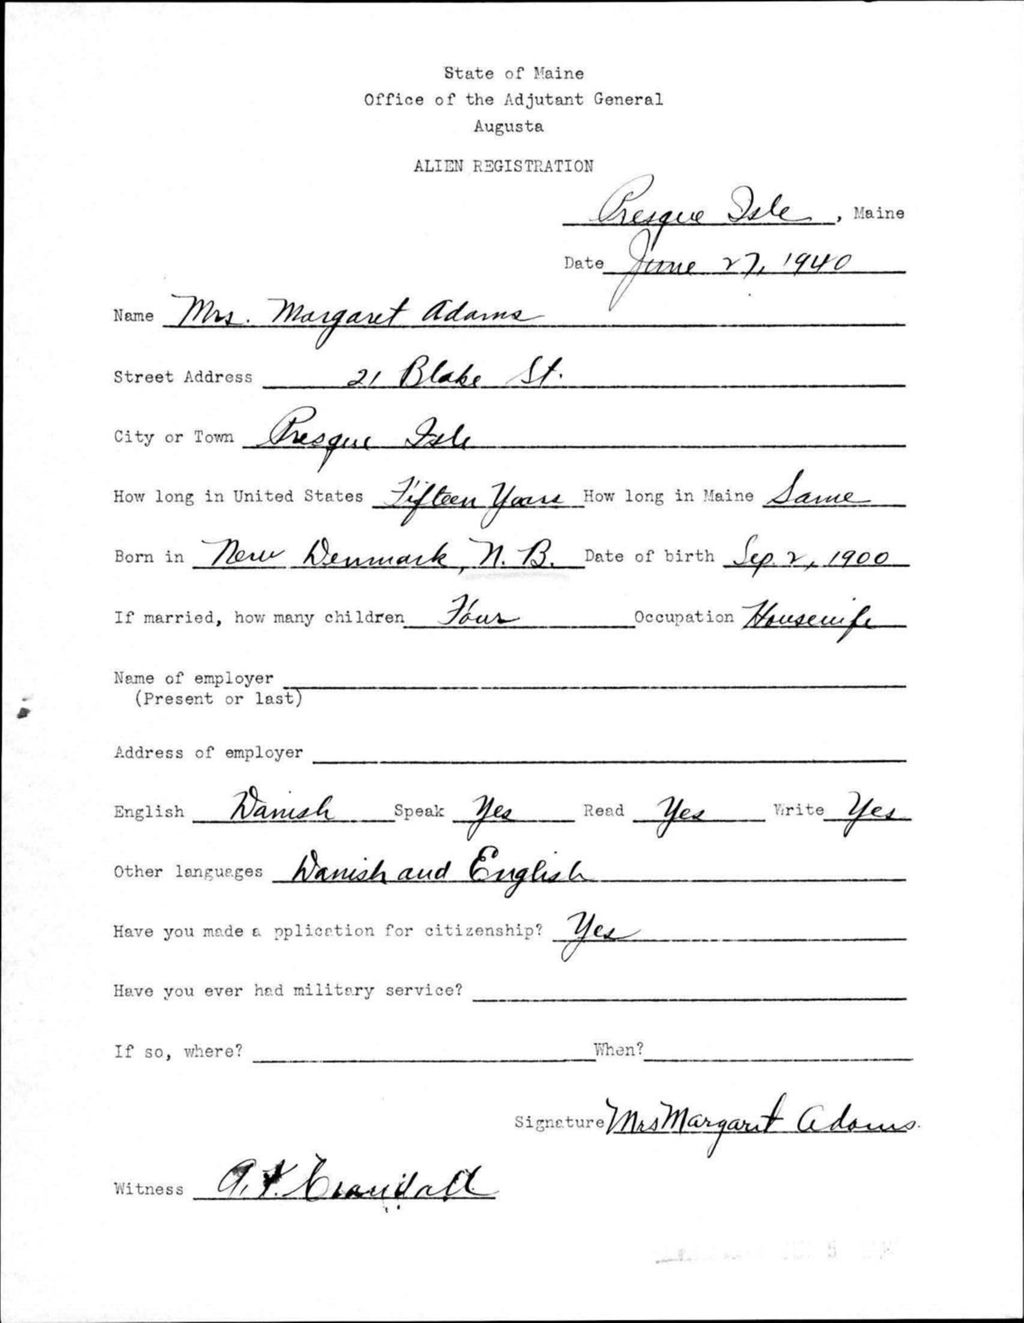 State of Maine
Office of the Adjutant General
Augusta
ALIEN REGISTRATION
Presque Isle, Maine
Date June 27, 1940
Name Mrs. Margaret Adams
Street Address 21 Blake St.
City or Town Presque Isle
How long in United States Fifteen Years How long in Maine Same
Born in New Denmark, N. B. Date of birth Sep. 2, 1900
If married, how many children Four Occupation Housewife
Name of employer
(Present or last)
Address of employer
English Danish Speak Yes Read Yes Write Yes
Other languages Danish and English
Have you made a pplication for citizenship? Yes
Have you ever had military service?
If so, where? When?
Signature Mrs Margaret Adams.
Witness A. Crandall